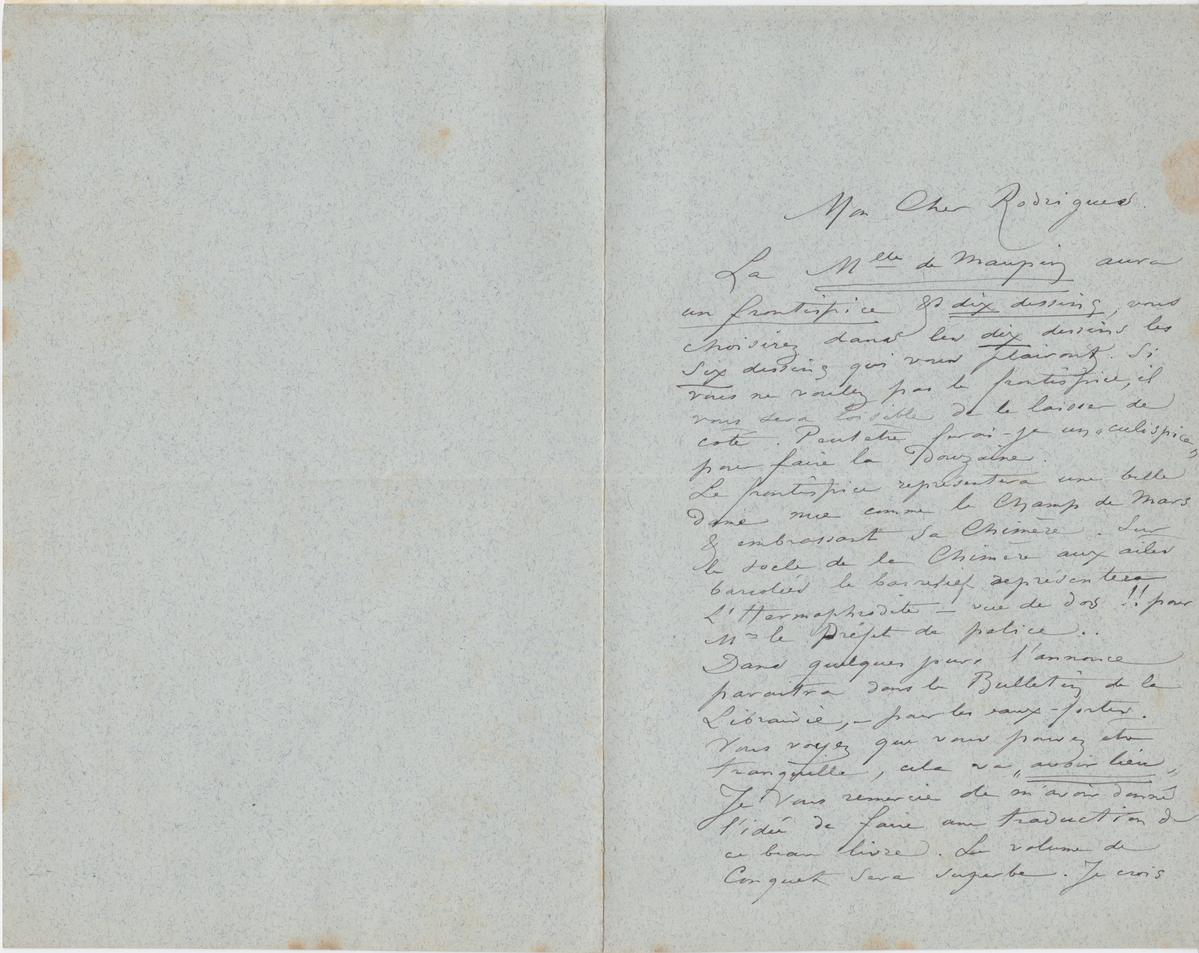 Mon Cher Rodrigues.
La Mlle de Maupin aura
un frontispice & dix dessins, vous
choisirez dans les dix dessins les
six dessins qui vous plairont. Si
vous ne voulez pas le frontispice, il
vous sera loisible de le laisser de
coté. Peutetre ferai-je un "culispice"
pour faire la Douzaine.
Le frontispice representera une belle
dame nue comme le Champ de Mars
& embrassant sa Chimère. Sur
le socle de la Chimère aux ailes
bariolées le basrelief représentera
L'Hermaphrodite – vue de dos !! pour
Mr le Préfet de police..
Dans quelques jours l'annonce
paraitra dans le Bulletin de la
Librairie, – pour les eaux-fortes.
Vous voyez que vous pouvez etre
tranquille, cela va "avoir lieu"
Je vous remercie de m'avoir donné
l'idée de faire une traduction de
ce beau livre. Le volume de
Conquet sera superbe. Je crois